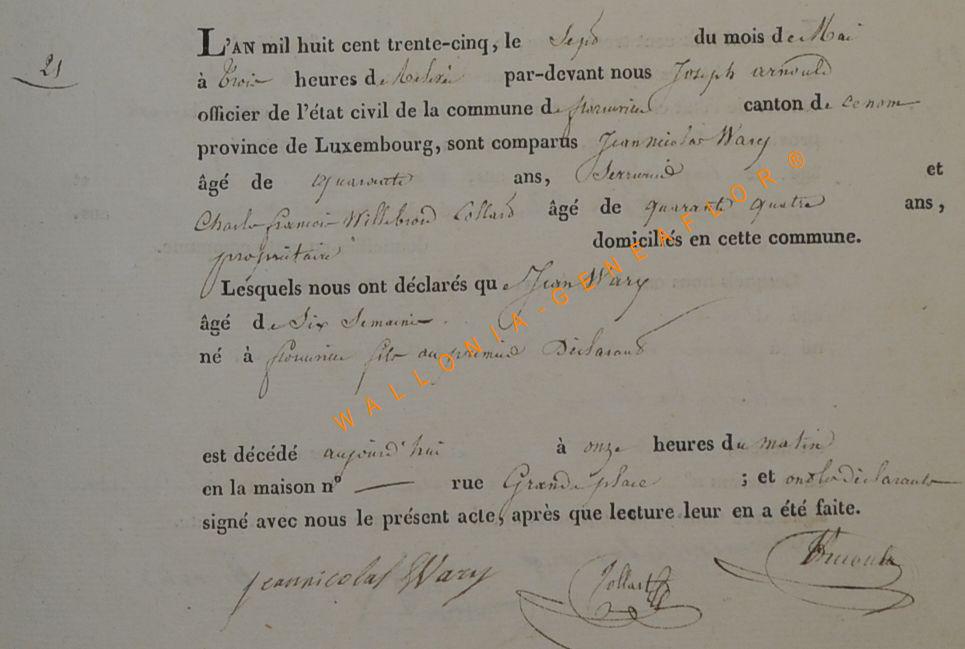 21
L'AN mil huit cent trente-cinq, le Sept du mois de Mai
à trois heures de Relevée par-devant nous Joseph arnould
officier de l'état civil de la commune de florenville canton de
province de Luxembourg, sont comparus Jean nicolas Wary
âgé de quarante ans, Serrurier et
Charles francois Willebrord Collard âgé de quarante quatre ans,
propriétaire domiciliés en cette commune.
Lesquels nous ont déclarés que Jean Wary
âgé de Six Semaines
né à florenville fils au premier Déclarant
est décédé aujourd'hui à onze heures du matin
en la maison n° — rue Grande place ; et ont les déclarants
signé avec nous le présent acte, après que lecture leur en a été faite.
jean nicolas Wary Collard Arnould
WALLONIA-GENEAFLOR®